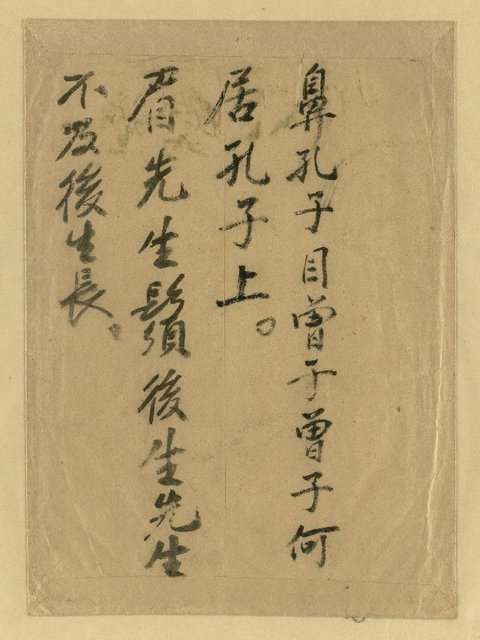 鼻孔子目曾子曾子何
居孔子上。
眉先生鬚後生先生
不及後生長。